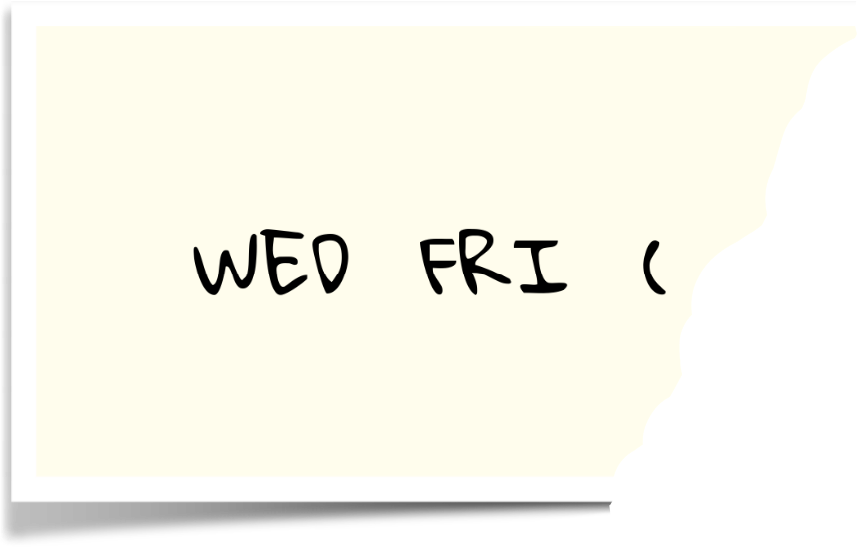 WED FRI (